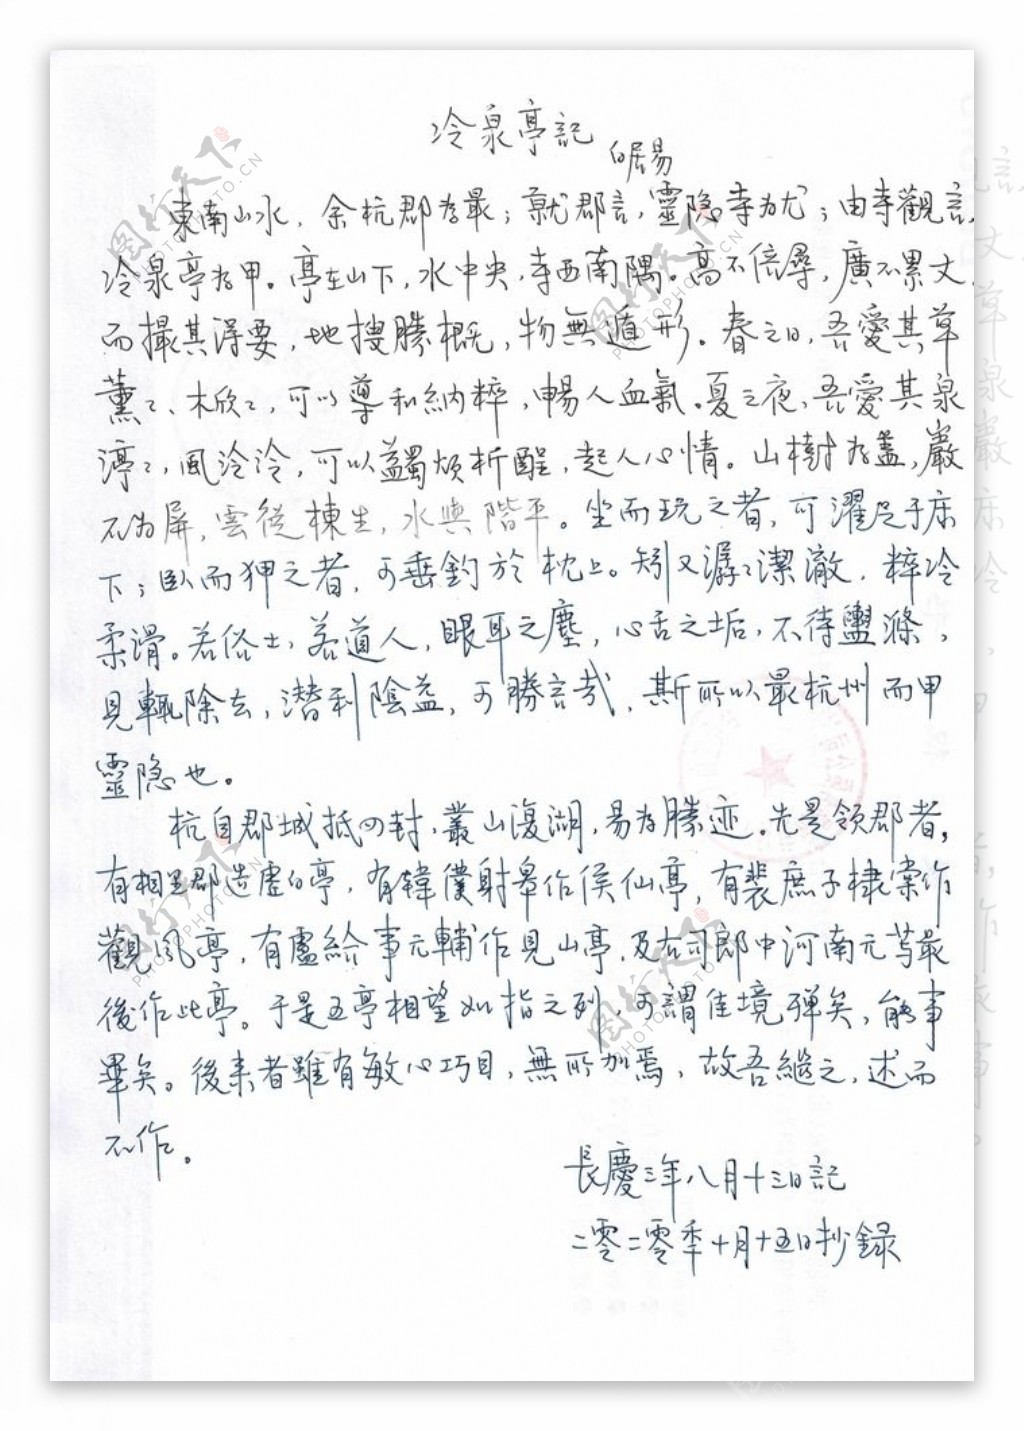 冷泉亭記
白居易
東南山水，余杭郡为最；就郡言，靈隐寺为尤；由寺觀言，
冷泉亭为甲。亭在山下，水中央，寺西南隅。高不倍尋，廣不累丈，
而撮其淂要，地搜勝概，物無遁形。春之日，吾愛其草
薰〻、木欣〻，可以導和納粹，暢人血氣。夏之夜，吾愛其泉
渟〻，風泠泠，可以蠲烦析酲，起人心情。山樹为蓋，巖
石为屏，雲從棟生，水與階平。坐而玩之者，可濯足于床
下；臥而狎之者，可垂釣於枕上。矧又潺〻潔澈，粹冷
柔滑。若俗士，若道人，眼耳之塵，心舌之垢，不待盥滌，
見輒除去，潜利陰益，可勝言哉，斯所以最杭州而甲
靈隐也。
杭自郡城抵四封，叢山復湖，易为勝迹。先是領郡者，
有相里郡造虚白亭，有韓僕射皋作侯仙亭，有裴庶子棣棠作
觀风亭，有盧給事元輔作見山亭，及右司郎中河南元藇最
後作此亭。于是五亭相望如指之列，可謂佳境殚矣，能事
畢矣。後来者雖有敏心巧目，無所加焉，故吾継之，述而
不作。
長慶三年八月十三日記
二零二零年十月十五日抄錄